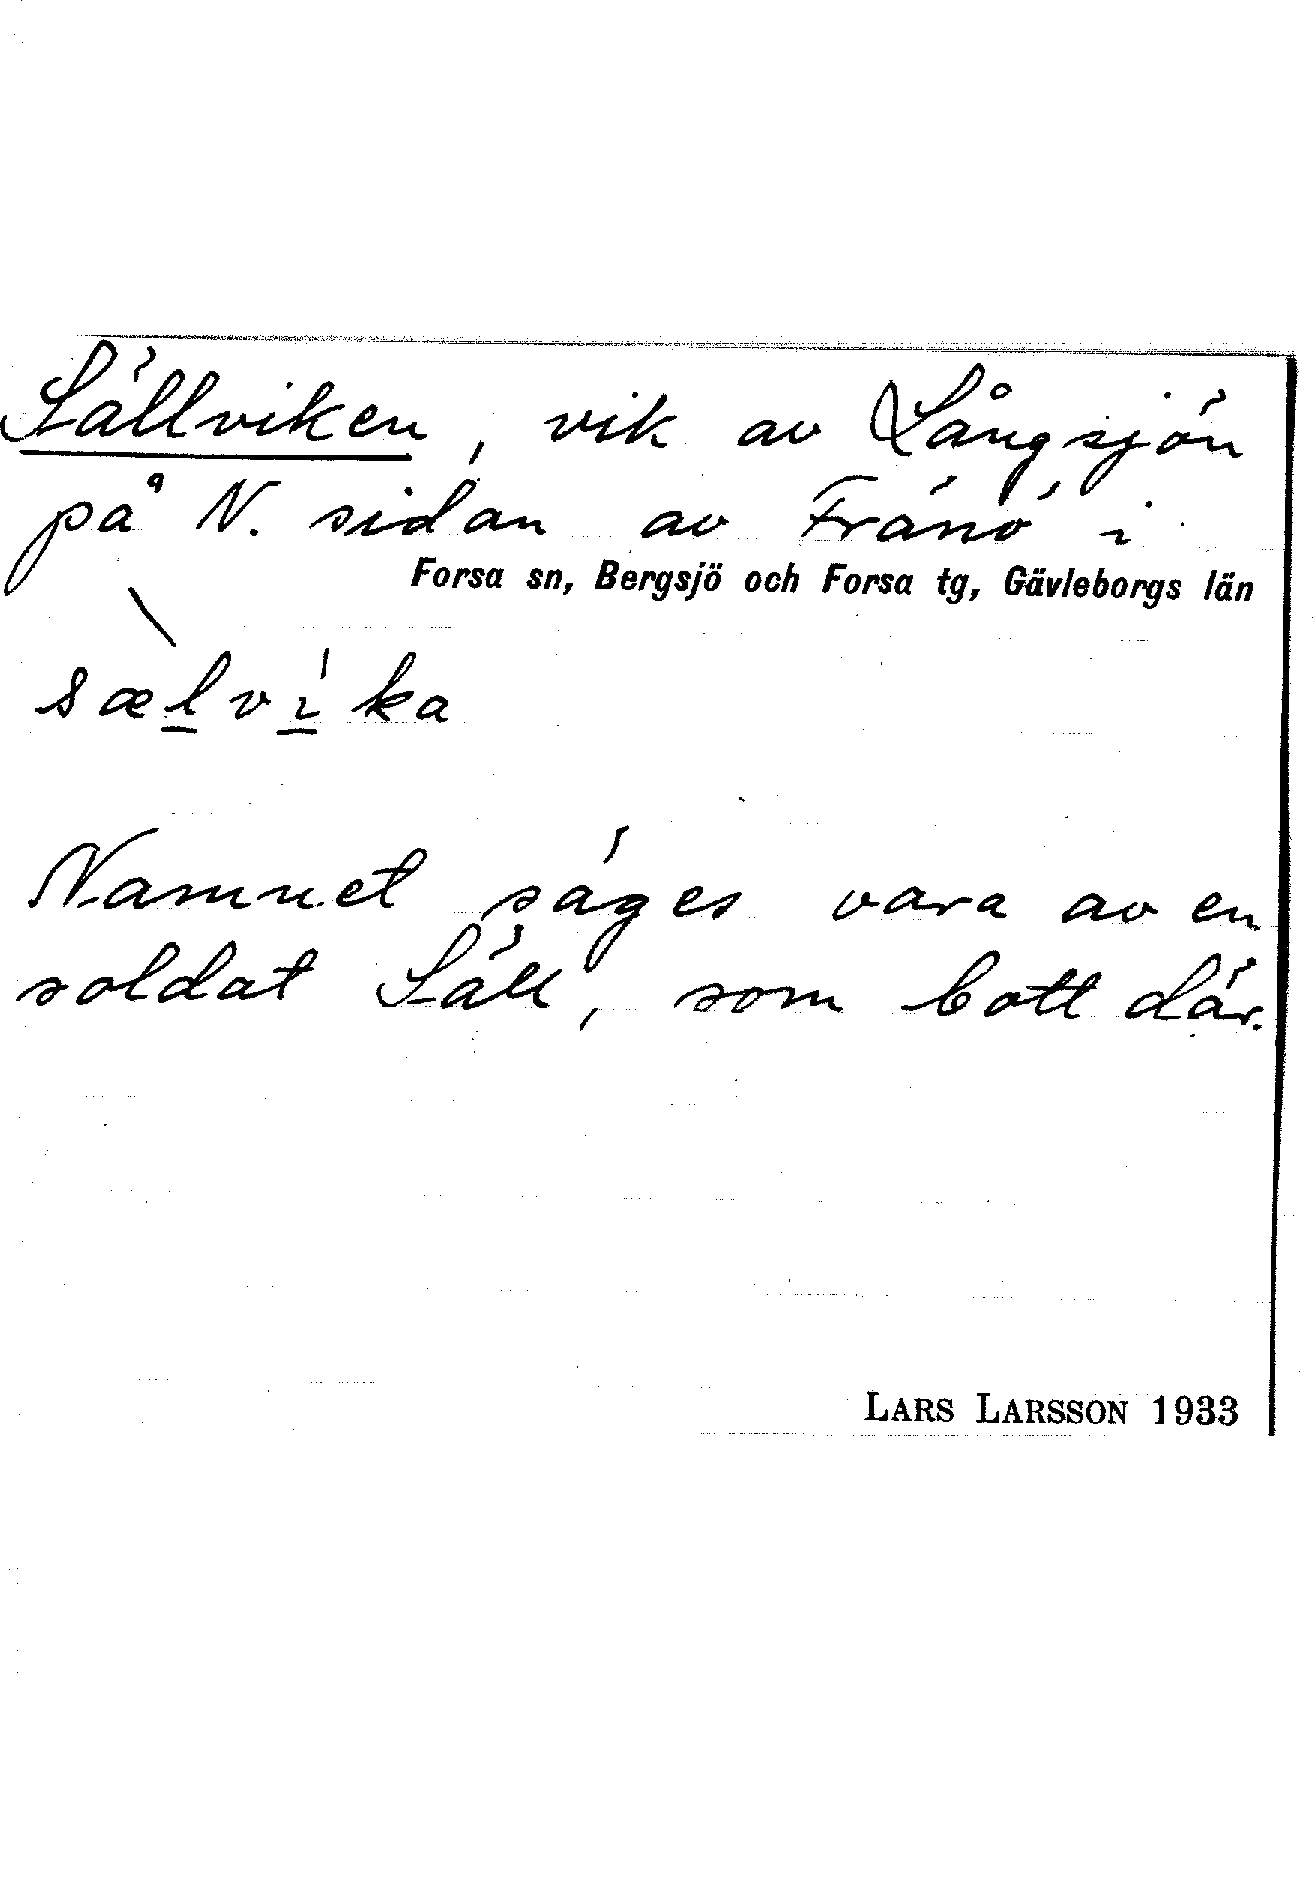 Sällviken, vik av Långsjön
på N. sidan av Fränö i
Forsa sn, Bergsjö och Forsa tg, Gävleborgs län
sælvika
Namnet säges vara av en
soldat Säll, som bott där.
LARS LARSSON 1933